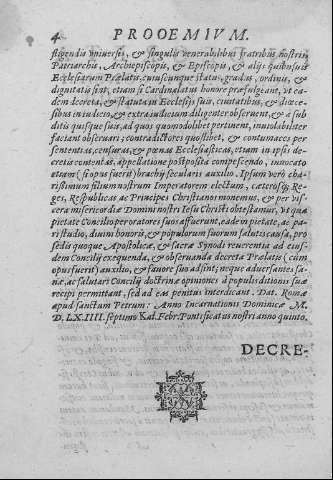 4 PROOEMIVM.
stigendis vniuersis, & singulis venerabilibus fratribus nostris
Patriarchis, Archiepiscopis, & Episcopis, & alijs quibusuis
Ecclesiarum Prælatis, cuiuscunque status, gradus, ordinis, &
dignitatis sint, etiam si Cardinalatus honore præfulgeant, vt ea-
dem decreta, & statuta in Ecclesijs suis, ciuitatibus, & diœce-
sibus in iudicio, & extra iudicium diligenter obseruent, & à sub-
ditis quisque suis, ad quos quomodolibet pertinet, inuiolabiliter
faciant obseruari; contradictores quoslibet, & contumaces per
sententias, censuras, & pœnas Ecclesiasticas, etiam in ipsis de-
cretis contentas, appellatione postposita compescendo, inuocato
etiam (si opus fuerit) brachij secularis auxilio. Ipsum verò cha-
rissimum filium nostrum Imperatorem electum, cæterosq; Re-
ges, Respublicas ac Principes Christianos monemus, & per vis-
cera misericordiæ Domini nostri Iesu Christi obtestamur, vt qua
pietate Concilio per oratores suos affuerunt, eadem pietate, ac pa-
ri studio, diuini honoris, & populorum suorum salutis causa, pro
sedis quoque Apostolicæ, & sacræ Synodi reuerentia ad eius-
dem Concilij exequenda, & obseruanda decreta Prælatis (cùm
opus fuerit) auxilio, & fauore suo adsint; neque aduersantes sa-
næ, ac salutari Concilij doctrinæ opiniones à populis ditionis suæ
recipi permittant, sed ad eas penitus interdicant. Dat. Romæ
apud sanctum Petrum: Anno Incarnationis Dominicæ M.
D. LX. IIII. septimo Kal. Febr. Pontificatus nostri anno quinto.
DECRE-